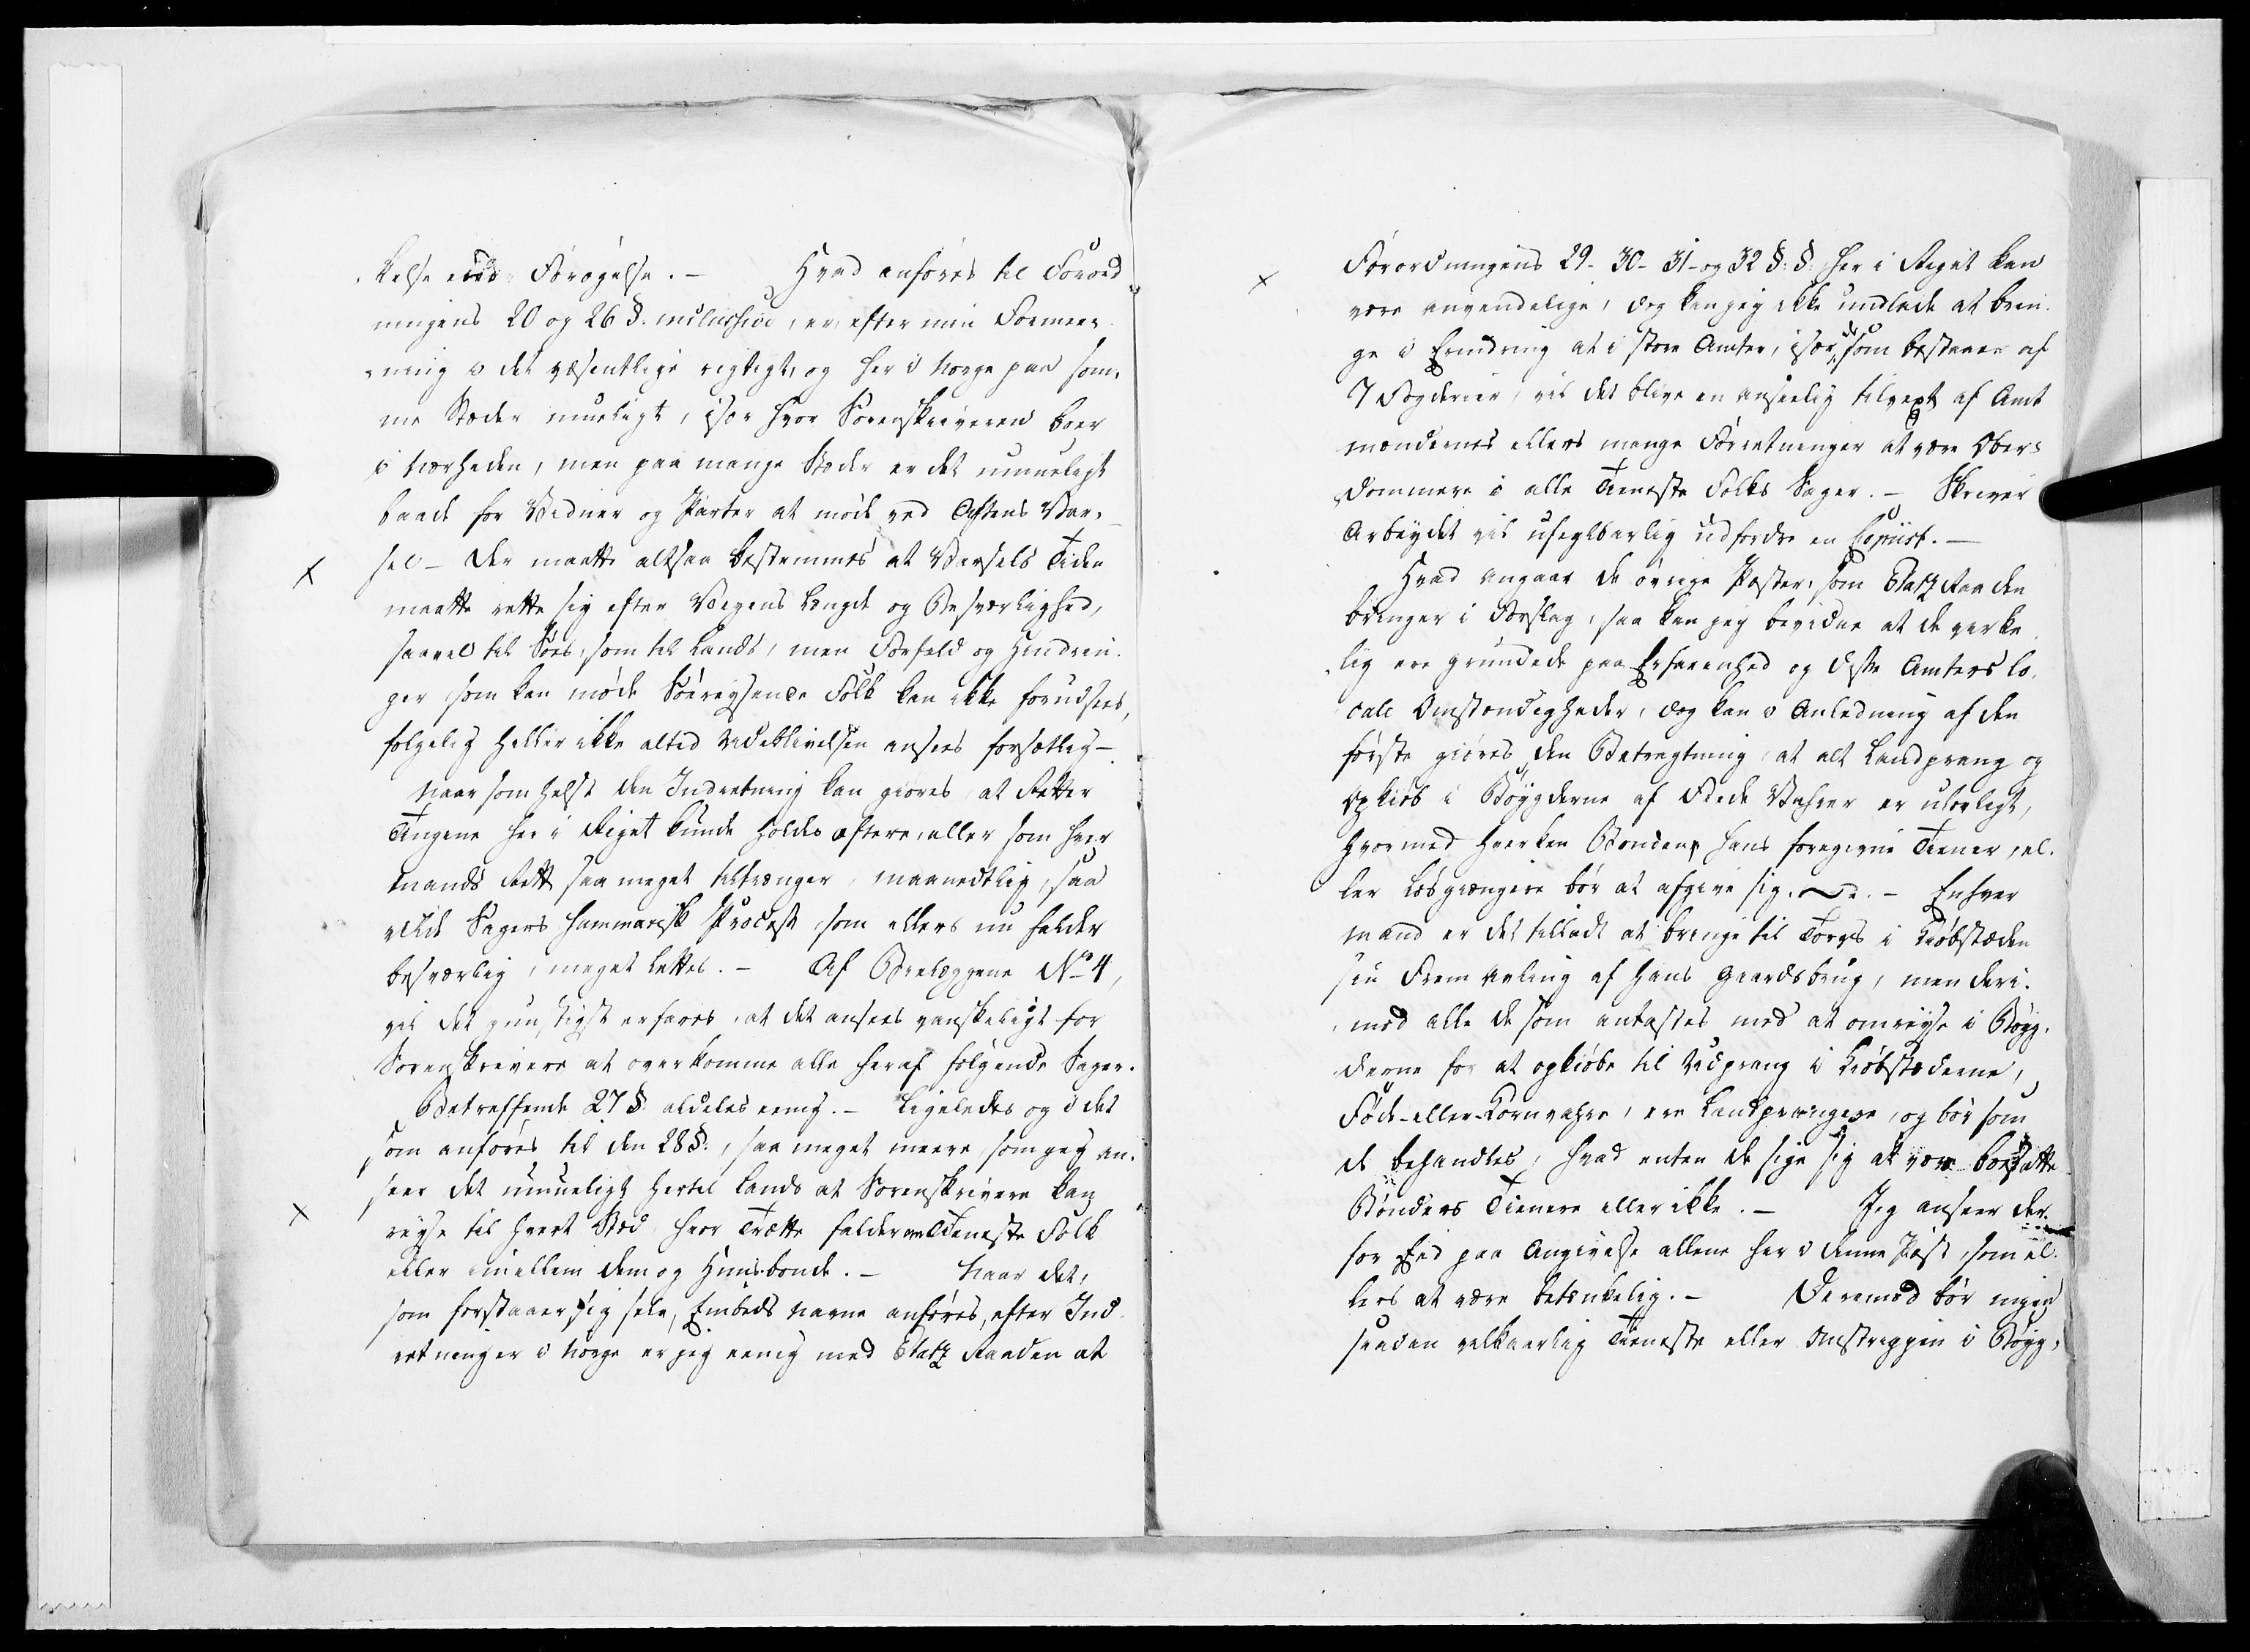 kelse ved Forøgelse. - Hvad anføres til Forord
ningens 20 og 26 §. inclusive, er, efter min Formee
ning i det væsentlige rigtigt, og her i Norge paa som,
me Stæder mueligt, især hvor Sorenskriveren boer
i Nærheden, men paa mange Stæder er det umueligt
baade for Vidner og Parter at møde ved Aftens Var,
sel - Der maatte altsaa bestemmes at Varsels Tiden
maatte rette sig efter Veyens Længde og Besværlighed,
saavel til Søes, som til Lands, men Forfald og Hindrin
ger som kan møde Søereysende Folk kan ikke forudsees,
følgelig heller ikke altid Udeblivelsen ansees forsætlig -
Naar som helst den Indretning kan giøres, at Retter
Tingene her i Riget kunde holdes oftere, eller som hver
Mands Rett saa meget tiltrænger, maanedtlig, saa
vilde Sagers Summarisk Process, som ellers nu falder
besværlig, meget lettes. - Af Brevlæggene No 4,
vil det gunstigst erfares, at det ansees vanskeligt for
Sorenskrivere at overkomme alle heraf følgende Sager.
Betreffende 27 §. aldeles eenig. - Ligeledes og i det
som anføres til den 28 §:, saa meget meere, som jeg an,
seer det umueligt hertil Lands at Sorenskrivere kan
reyse til hvert Stæd hvor Trætte falder om Tieneste Folk
eller imellem dem og Huusbonde. - Naar det,
som forstaaer sig selv, Embeds Navne anføres, efter Ind
retninger i Norge er jeg eenig med Etatz Raaden at
Forordningens 29- 30- 31- og 32 §: §: her i Riget kan
være anvendelige, dog kan jeg ikke undlade at brin
ge i Erindring at i store Amter, især de som bestaaer af
7 Fogderier, vil det blive en anseelig tilvext af Amt
mændernes ellers mange Forretninger at være Ober,
dommere i alle Tieneste Folks Sager. - Skriver
Arbeydet vil ufeylbarlig udfordre en Copiist. -
Hvad angaar de øvrige Poster, som Etatz Raaden
bringer i Forslag, saa kan jeg bevidne at de virke
lig ere grundede paa Erfarenhed og disse Amters lo,
cale Omstændigheder, dog kan i Anledning af den
første giøres den Betragtning, at alt Landprang og
Opkiøb i Bøygderne af Fede Vahrer er ulovligt,
hvormed hverken Bonden, hans foregivne Tiener, el,
ler Løsgiængere bør at afgive sig. - Enhver
Mand er det tilladt at bringe til Torvs i Kiøbstæden
sin Fremavling af hans Gaardsbrug, men deri,
mod alle de som antastes med at omreyse i Bøyg,
derne for at opkiøbe til Udprang i Kiøbstæderne,
Føde- eller Kornvahre, ere Landprangere, og bør som
de behandles, hvad enten de sige sig at være boesatte
Bønders Tienere eller ikke. - Jeg anseer der,
for Eed paa Angivelse allene her i denne Post, som el,
lers at være betænkelig. - Deremod bør ingen
saadan vilkaarlig Tieneste eller Omstrippen i Bøyg,